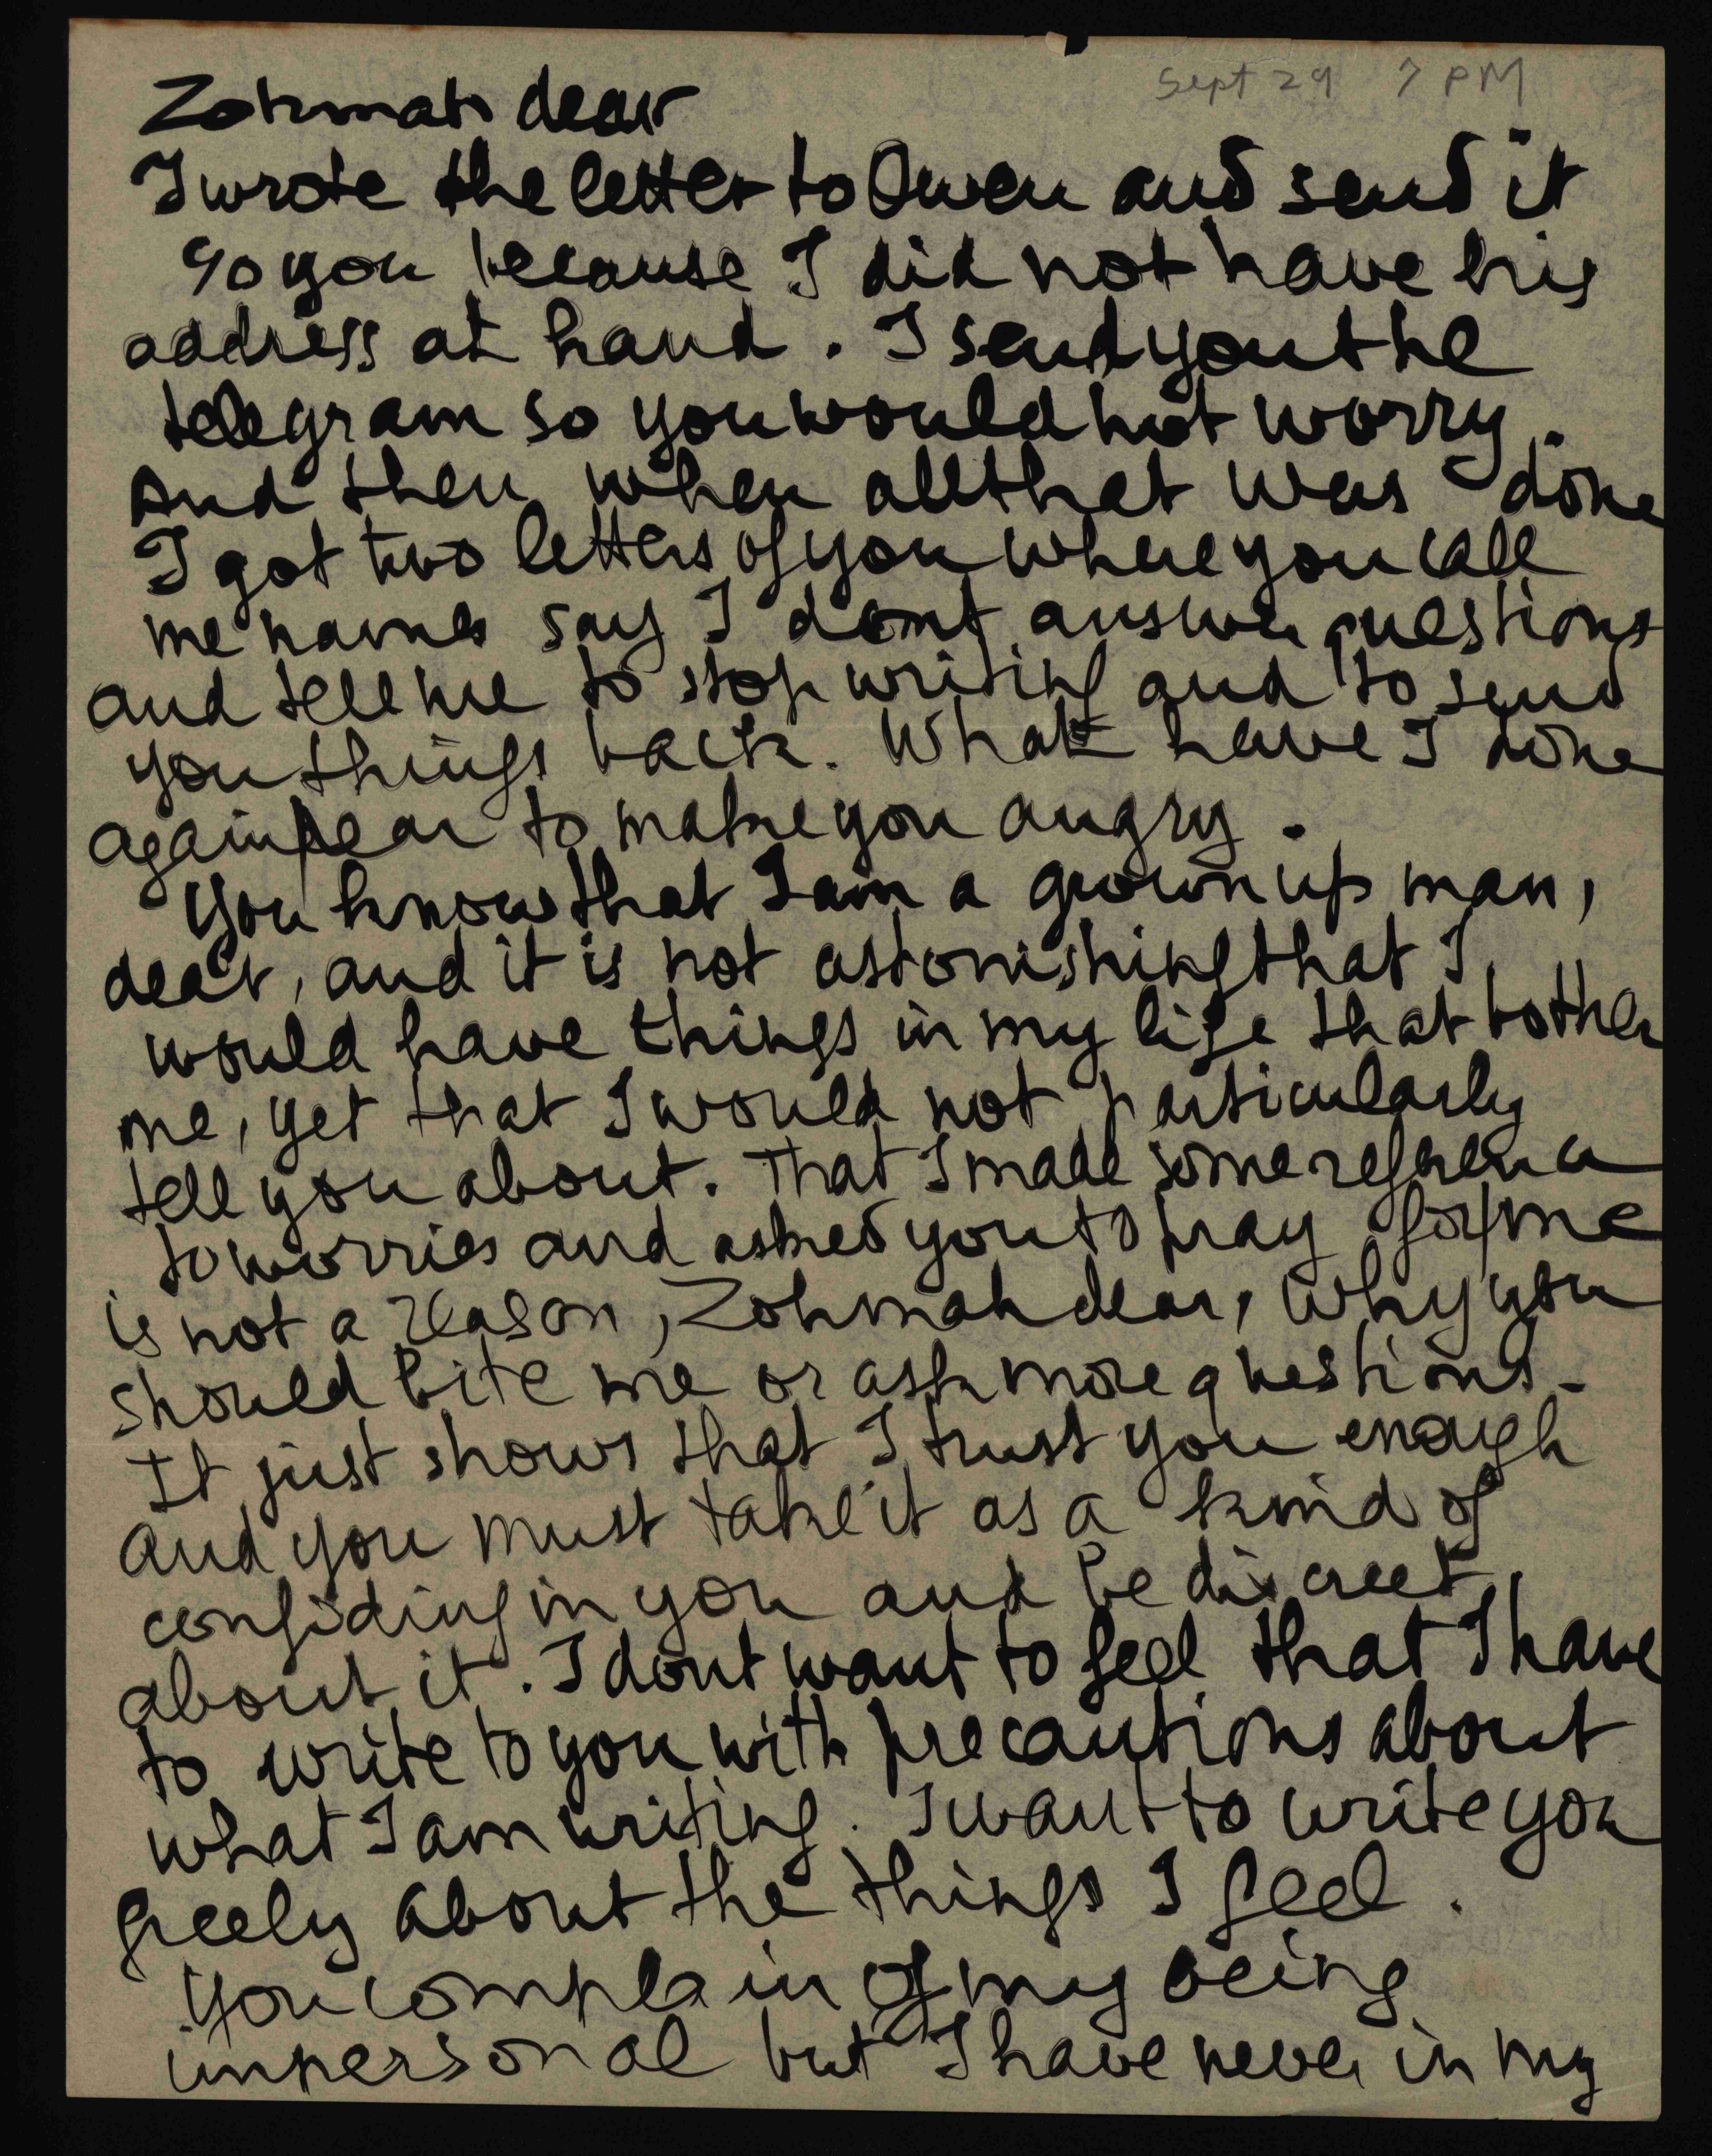 Sept 29 7 PM
Zohmah dear
I wrote the letter to Owen and send it
to you because I did not have his
address at hand. I send you the
telegram so you would not worry.
And then when all that was done
I got two letters of you where you call
me names say I dont answer questions
and tell me to stop writing and to send
you things back. What have I done
again dear to make you angry.
You know that I am a grown up man,
dear, and it is not astonishing that I
would have things in my life that bother
me, yet that I would not particularly
tell you about. That I made some reference
to worries and asked you to pray for me
is not a reason, Zohmah dear, why you
should bite me or ask more questions.
It just shows that I trust you enough
and you must take it as a kind of
confiding in you and be discreet
about it. I dont want to feel that I have
to write to you with precautions about
what I am writing. I want to write you
freely about the things I feel.
You complain of my being
impersonal but I have never in my